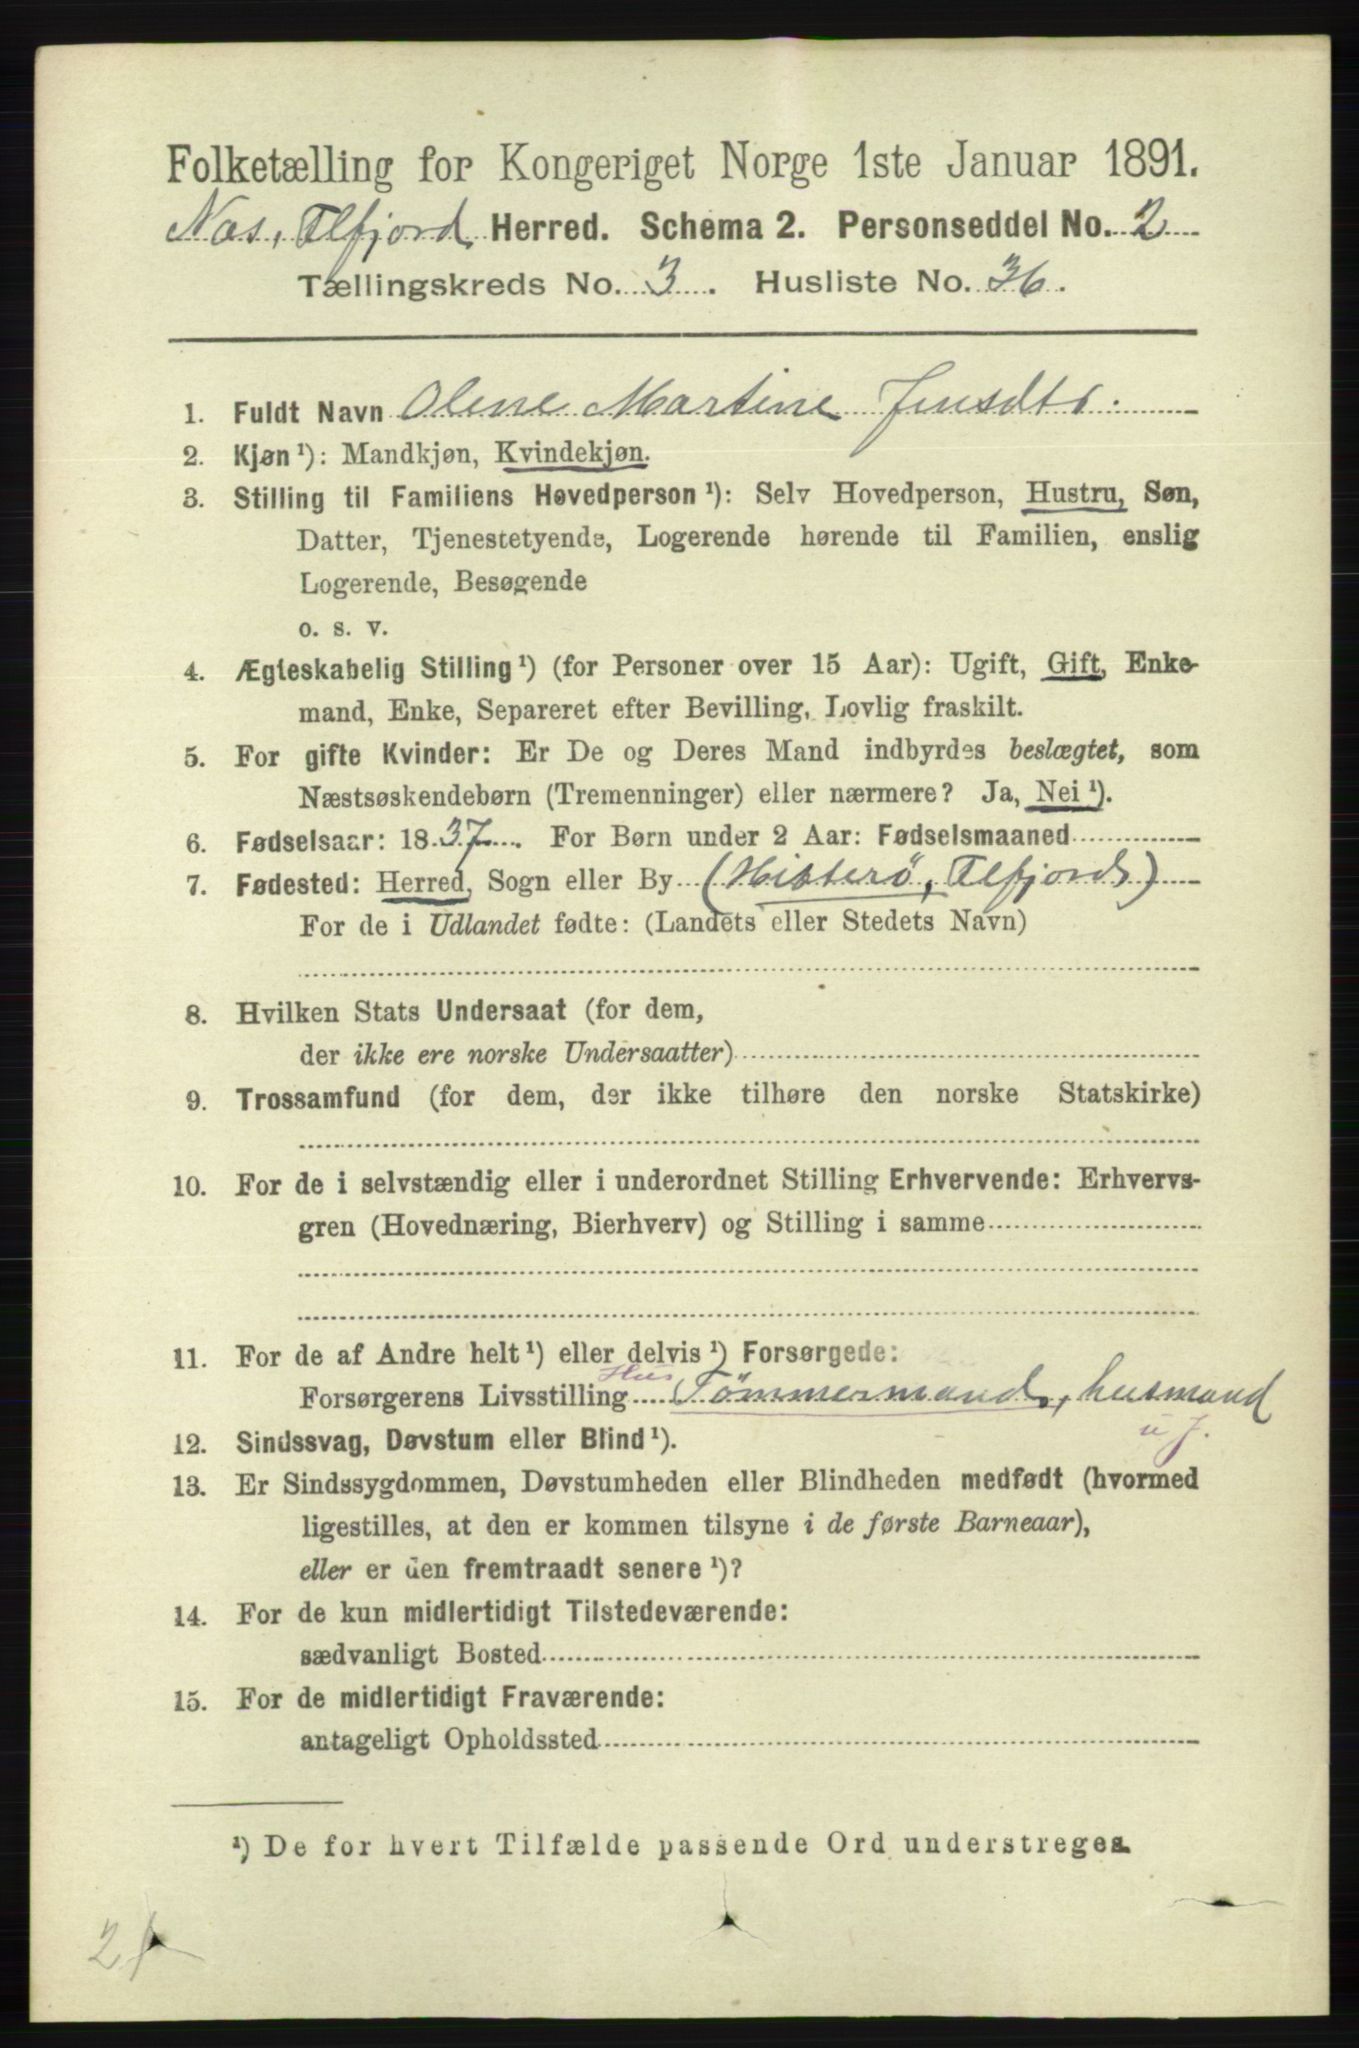 Folketælling for Kongeriget Norge 1ste Januar 1891.
Nes, Flekkefjord Herred. Schema 2. Personseddel No. 2
Tællingskreds No. 3. Husliste No. 36.
1. Fuldt Navn Olene Martine Jensdtr.
2. Kjøn ¹): Mandkjøn, Kvindekjøn.
3. Stilling til Familiens Hovedperson ¹): Selv Hovedperson, Hustru, Søn,
Datter, Tjenestetyende, Logerende hørende til Familien, enslig
Logerende, Besøgende
o. s. v.
4. Ægteskabelig Stilling ¹) (for Personer over 15 Aar): Ugift, Gift, Enke-
mand, Enke, Separeret efter Bevilling, Lovlig fraskilt.
5. For gifte Kvinder: Er De og Deres Mand indbyrdes beslægtet, som
Næstsøskendebørn (Tremenninger) eller nærmere? Ja, Nei ¹).
6. Fødselsaar: 1837. For Børn under 2 Aar: Fødselsmaaned
7. Fødested: Herred, Sogn eller By (Hitterø, Flfjords)
For de i Udlandet fødte: (Landets eller Stedets Navn)
8. Hvilken Stats Undersaat (for dem,
der ikke ere norske Undersaatter)
9. Trossamfund (for dem, der ikke tilhøre den norske Statskirke)
10. For de i selvstændig eller i underordnet Stilling Erhvervende: Erhvervs-
gren (Hovednæring, Bierhverv) og Stilling i samme
11. For de af Andre helt ¹) eller delvis ¹) Forsørgede:
Forsørgerens Livsstilling Hus Tømmermand, husmand
u J.
12. Sindssvag, Døvstum eller Blind ¹).
13. Er Sindssygdommen, Døvstumheden eller Blindheden medfødt (hvormed
ligestilles, at den er kommen tilsyne i de første Barneaar),
eller er den fremtraadt senere ¹)?
14. For de kun midlertidigt Tilstedeværende:
sædvanligt Bosted
15. For de midlertidigt Fraværende:
antageligt Opholdssted
¹) De for hvert Tilfælde passende Ord understreges.